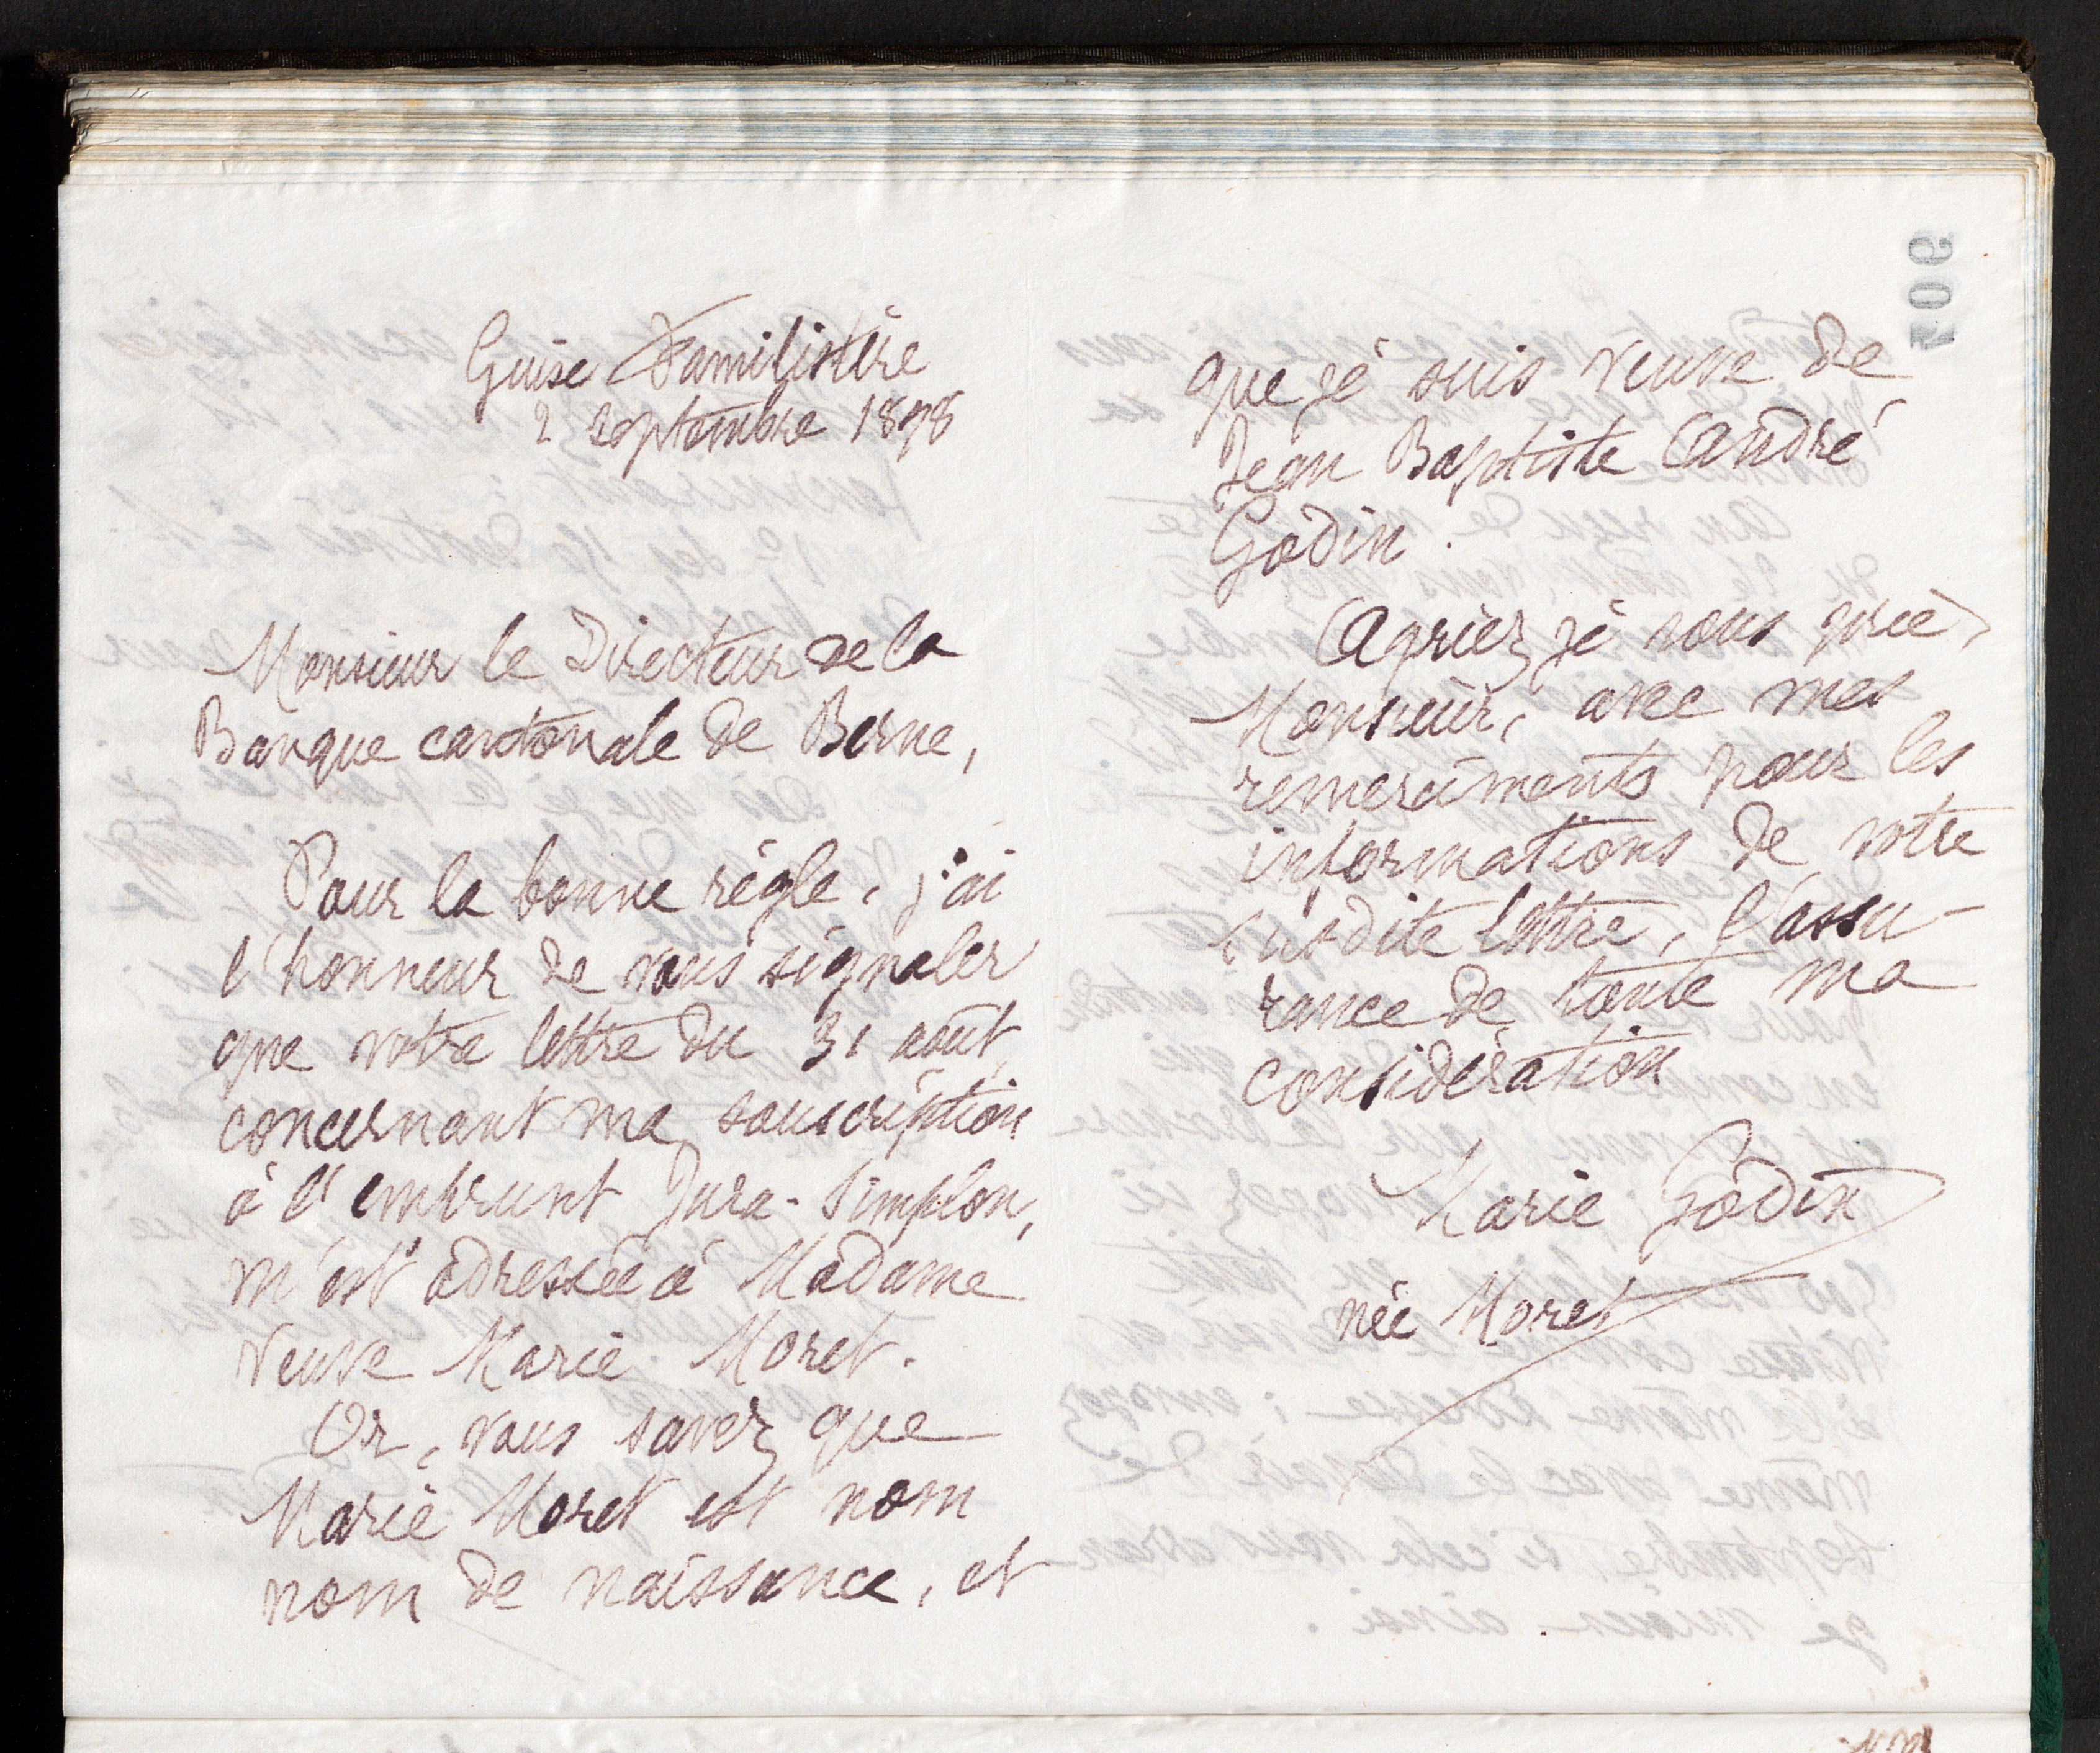 Guise Familistère
2 septembre 1898
Monsieur le Directeur de la
Banque cantonale de Berne,
Pour la bonne règle, j'ai
l'honneur de vous signaler
que votre lettre du 31 août,
concernant ma souscription
à l'emprunt Jura-Simplon,
m'est adressée à Madame
Veuve Marie Moret.
Or, vous savez que
Marie Moret est nom
nom de naissance, et
que je suis veuve de
Jean Baptiste André
Godin.
Agréez, je vous prie,
Monsieur, avec mes
remerciments pour les
informations de votre
susdite lettre, l'assu-
rance de toute ma
considération
Marie Godin
née Moret
506